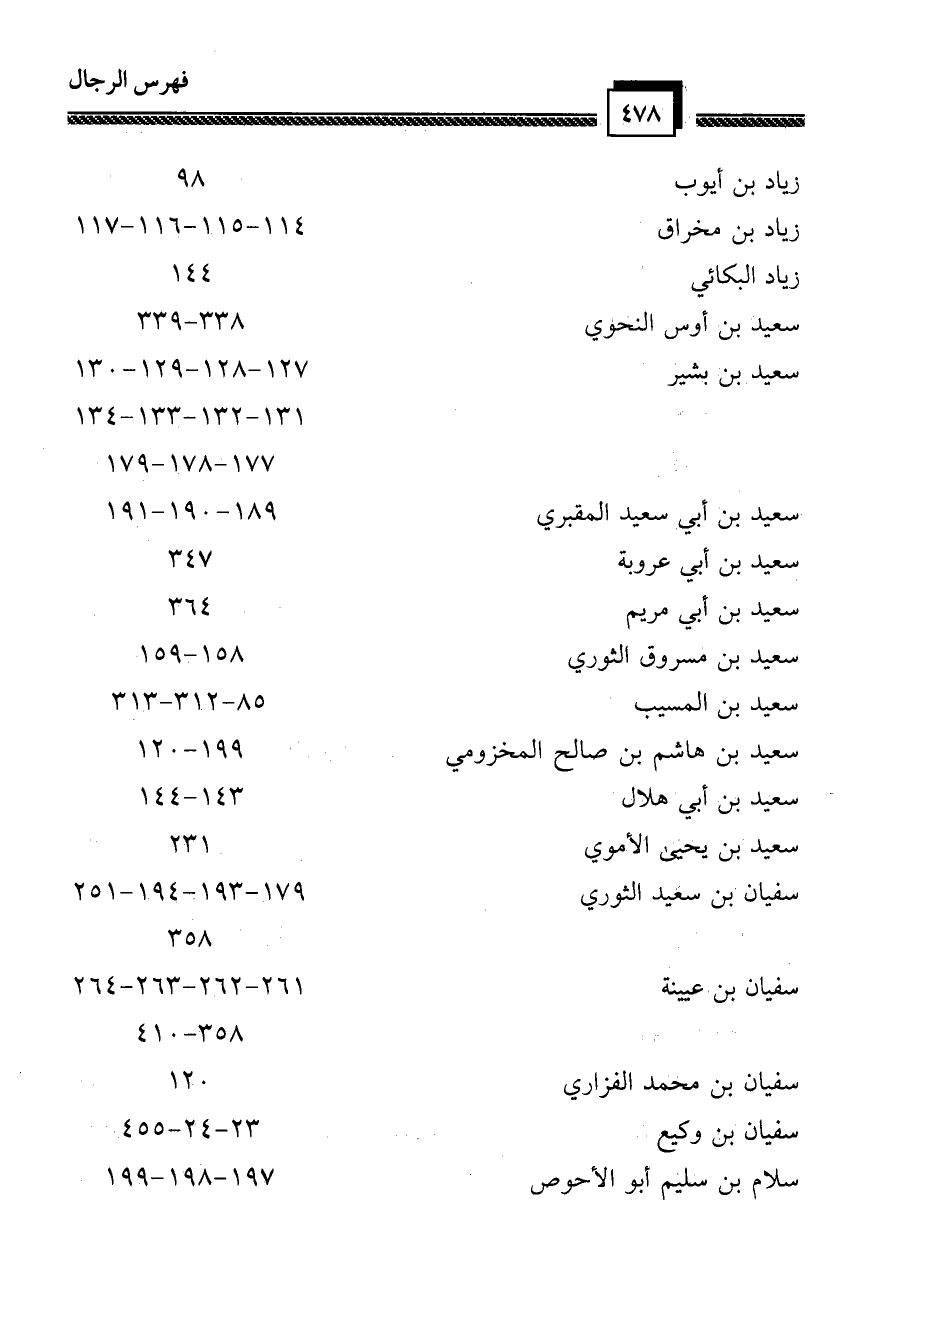 فهرس الرجال
٤٧٨
زياد بن أيوب ٩٨
زياد بن مخراق ١١٤-١١٥-١١٦-١١٧
زياد البكائي ١٤٤
سعيد بن أوس النحوي ٣٣٨-٣٣٩
سعيد بن بشير ١٢٧-١٢٨-١٢٩-١٣٠
١٣١-١٣٢-١٣٣-١٣٤
١٧٧-١٧٨-١٧٩
سعيد بن أبي سعيد المقبري ١٨٩-١٩٠-١٩١
سعيد بن أبي عروبة ٣٤٧
سعيد بن أبي مريم ٣٦٤
سعيد بن مسروق الثوري ١٥٨-١٥٩
سعيد بن المسيب ٨٥-٣١٢-٣١٣
سعيد بن هاشم بن صالح المخزومي ١٩٩-١٢٠
سعيد بن أبي هلال ١٤٣-١٤٤
سعيد بن يحيىٰ الأموي ٢٣١
سفيان بن سعيد الثوري ١٧٩-١٩٣-١٩٤-٢٥١
٣٥٨
سفيان بن عيينة ٢٦١-٢٦٢-٢٦٣-٢٦٤
٣٥٨-٤١٠
سفيان بن محمد الفزاري ١٢٠
سفيان بن وكيع ٢٣-٢٤-٤٥٥
سلام بن سليم أبو الأحوص ١٩٧-١٩٨-١٩٩